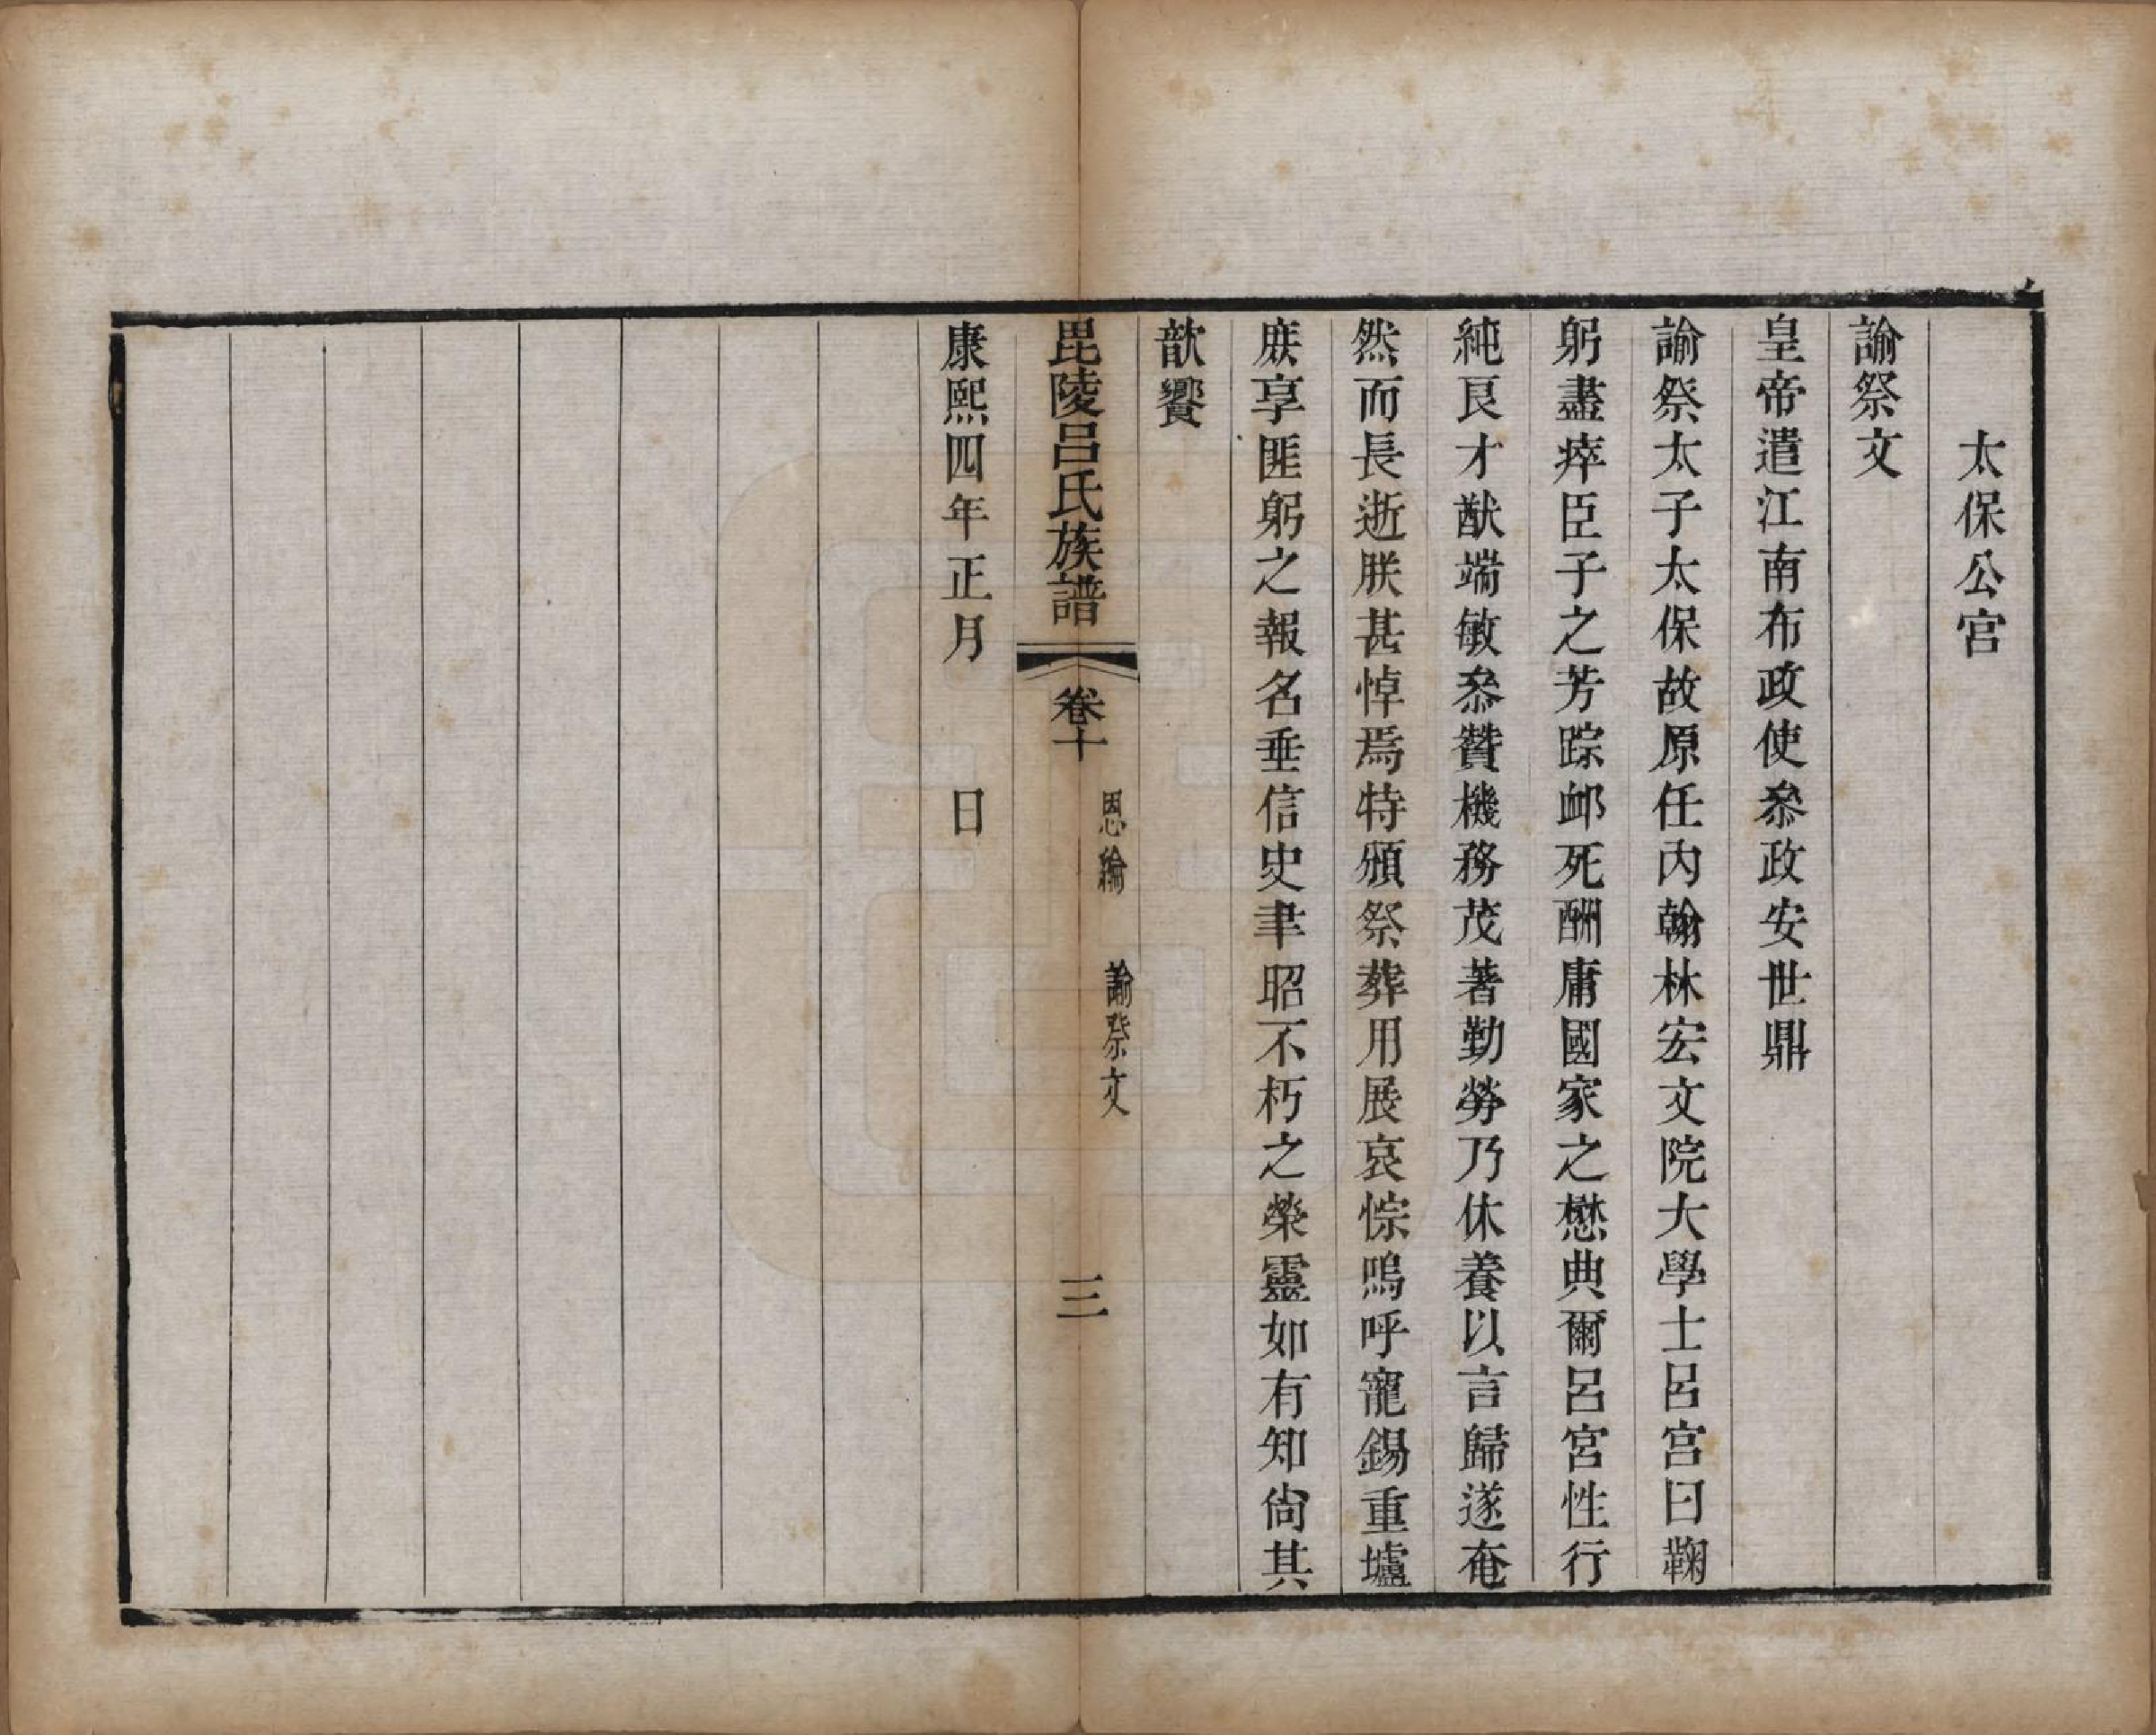 太保公宮
諭祭文
皇帝遣江南布政使叅政安世鼎
諭祭太子太保故原任内翰林宏文院大學士呂宮曰鞠
躬盡瘁臣子之芳踪衈死酬庸國家之懋典爾呂宮性行
純良才猷端敏叅贊機務茂著勤勞乃休養以言歸遂奄
然而長逝朕甚悼焉特頒祭葬用展哀悰嗚呼寵錫重壚
庶享匪躬之報名垂信史聿昭不朽之榮靈如有知尙其
歆饗
毘陵呂氏族譜 卷十 恩綸 諭祭文 三
康熙四年正月 日